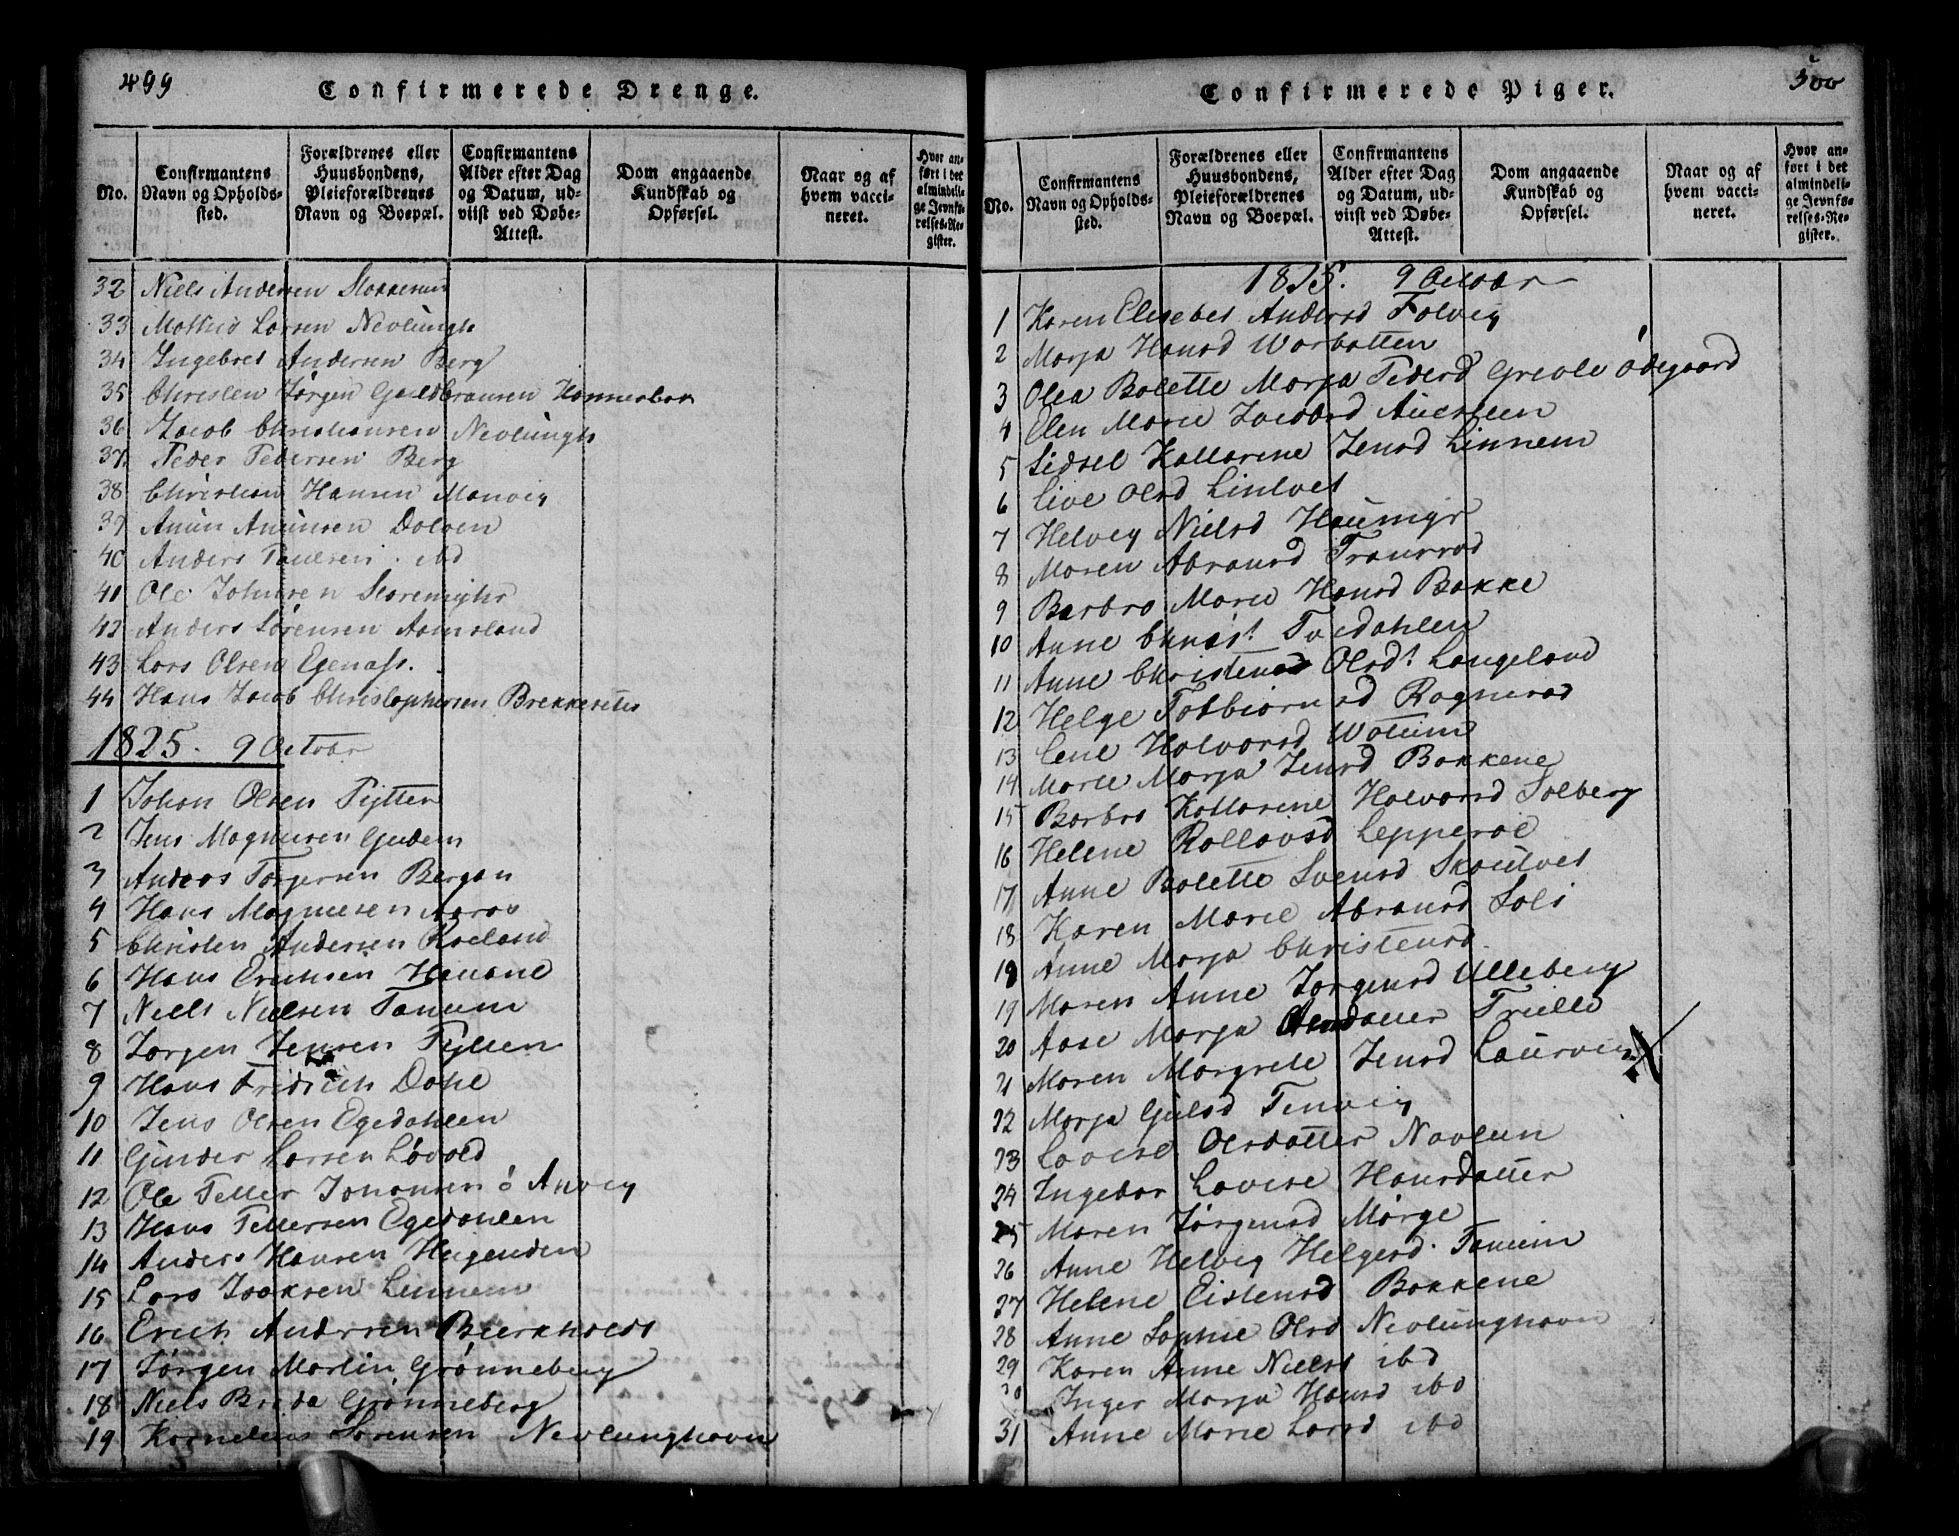 499
Confirmerede Drenge.
No.
Confirmantens Navn og Opholdssted.
Forældrenes eller Huusbondens, Pleieforældrenes Navn og Boepæl.
Confirmantens Alder efter Dag og Datum, udviist ved Døbe-Attest.
Dom angaaende Kundskab og Opførsel.
Naar og af hvem vaccineret.
Hvor anført i det almindelige Jevnførelses-Register.
32 Niels Andersen
33 Larsen Nevlungh
34 Ingebret Andersen Berg
35 Christen Jørgen Guldbransen
36 Jacob Christiansen Nevlungh
37 Peder Pedersen Berg
38 Christian Hansen Manvig
39 Anun Anunsen Dolven
40 Anders Paulsen ibd
41 Ole Johnsen
42 Anders Sørensen
43 Lars Olsen
44 Hans Jacob Christophersen Brekkesetes
1825. 9 Octobr
1 Johan Olsen Pytter
2 Jens Magnusen Gudem
3 Anders Torgersen Bergan
4 Hans Magnusen Aaros
5 Christen Andersen Roeland
6 Hans Erichsen Hauane
7 Niels Nielsen Tanum
8 Jørgen Jensen
9 Hans Fridrich Dahl
10 Jens Olsen Egedahlen
11 Gunder Larsen Løvold
12 Ole Petter Johansen ó Anvig
13 Hans Pettersen Egedahlen
14 Anders Hansen
15 Lars Isaksen Linnem
16 Erich Andersen
17 Jørgen Martin Grønneberg
18 Niels Brede Grønneberg
19 Kornelius Sørensen Nevlunghavn
500
Confirmerede Piger.
No.
Confirmantens Navn og Opholdssted.
Forældrenes eller Huusbondens, Pleieforældrenes Navn og Boepæl.
Confirmantens Alder efter Dag og Datum, udviist ved Døbe-Attest.
Dom angaaende Kundskab og Opførsel.
Naar og af hvem vaccineret.
Hvor anført i det almindelige Jevnførelses-Register.
1825. 9 Octobr
1 Karen Elisebet Andersd Foldvig
2 Marja Hansd
3 Olea Bolette Marja Pedersd Grevle Ødegaard
4 Elen Marie Jacobsd
5 Sidsel Kattarine Jensd Linnem
6 Live Olsd Lindvet
7 Helvig Nielsd
8 Maren Abramsd
9 Barbro Marie Hansd Bakke
10 Anne Tvedahlen
11 Anne Olsdt Langeland
12 Helge Torbiørnsd
13 Lene Halvorsd
14 Marte Marja Jensd Bakkene
15 Barbro Kattarine Halvorsd Solberg
16 Helene Rollovsd
17 Anne Bolette Svensd
18 Karen Marie Abramsd Soli
18 Anne Marja Christensd
19 Maren Anne Jørgensd Ulleberg
20 Aase Marja
21 Maren Margrete Jensd Laurvig
22 Marja
23 Lovise Olsdatter
24 Ingebor Lovise Hansdatter
25 Maren Jørgensd Mørge
26 Anne Helvig Helgesd. Tanum
27 Helene Eistensd Bakkene
28 Anne Sophie Olsd Nevlunghavn
29 Karen Anne Nielsd ibd
30 Inger Marja Hansd ibd
31 Anne Marie Larsd ibd